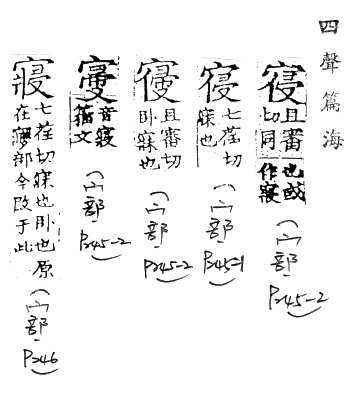 四聲篇海
寑 且審切同也或作寢 (宀部) P245-2
七荏切寐也 (宀部) P245-1
且審切卧寐也 (宀部) P245-2
音寢籀文 (宀部) P245-2
寢 七荏切寐也卧也原在㝱部今改于此 (宀部) P246